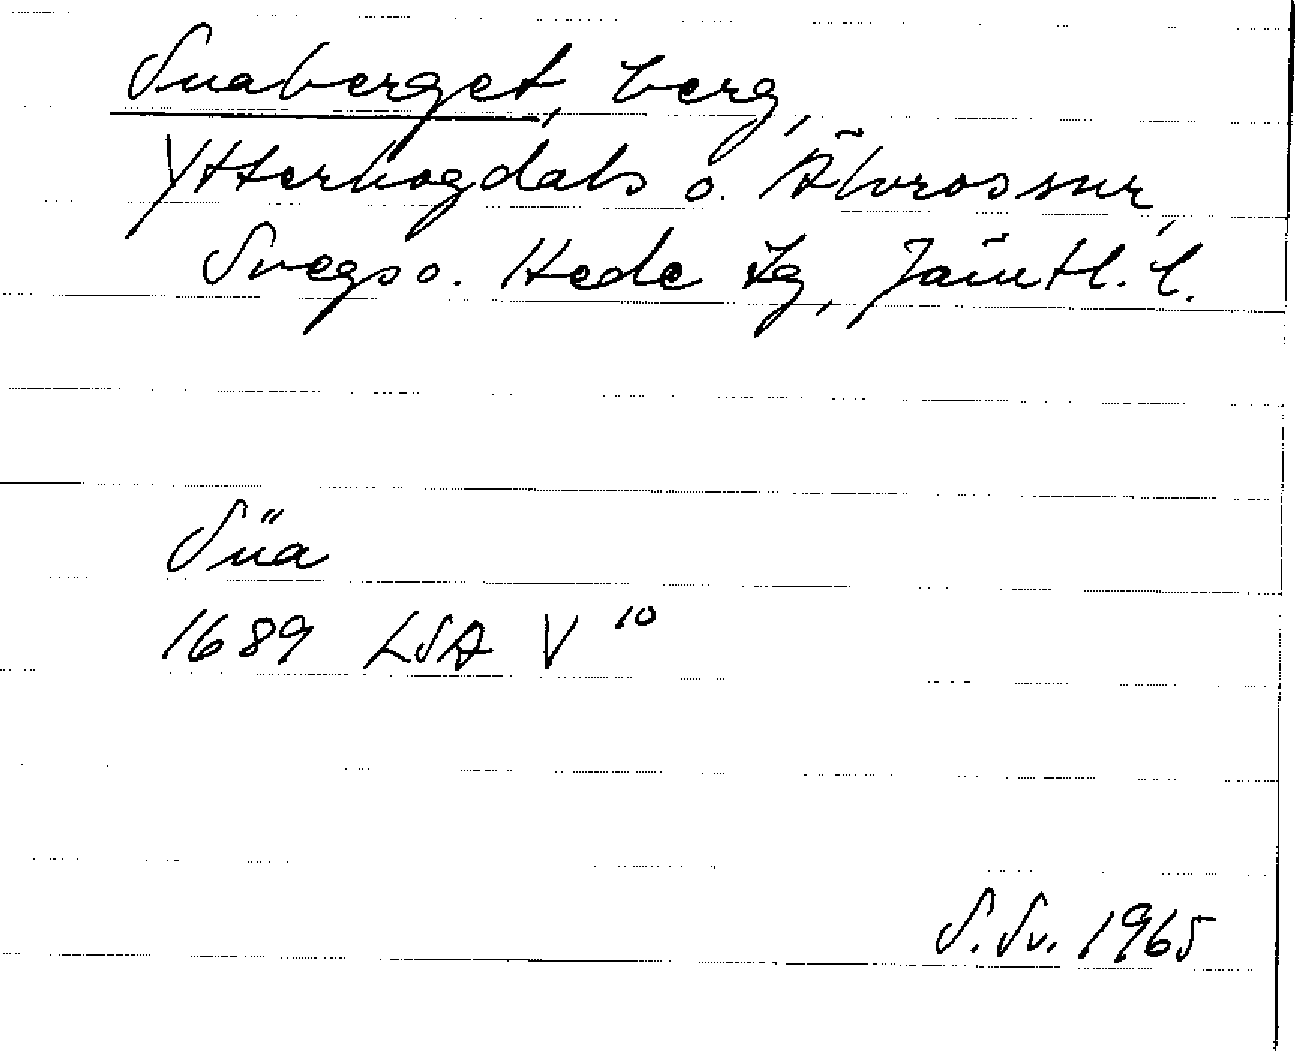 Suaberget, berg,
Ytterhogdals o. Älvros snr,
Svegs o. Hede tg, Jämtl. l.
Süa
1689 LSA V 10
S. Sv. 1965